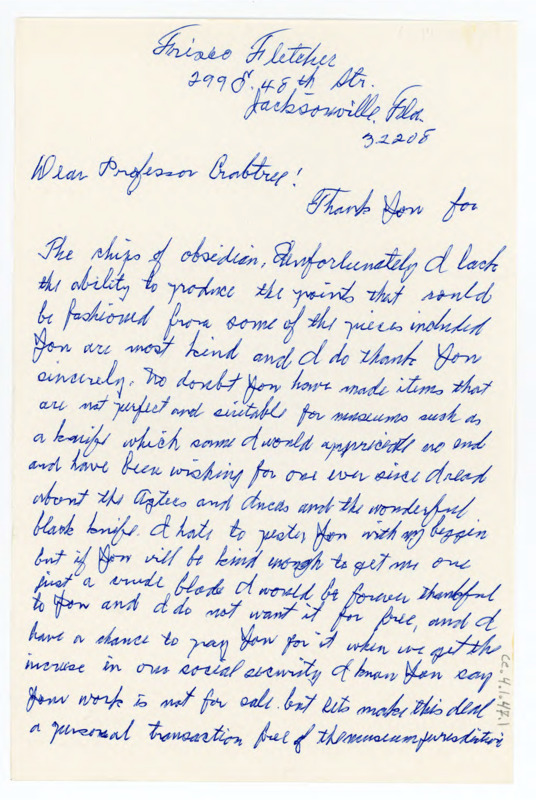 Frisco Fletcher
299 E. 48th Str.
Jacksonville, Fla.
32208
Dear Professor Crabtree!
Thank You for
The chips of obsidian, Unfortunately I lack
the ability to produce the points that could
be fashioned from some of the pieces included
You are most kind and I do thank You
sincerely. No doubt You have made items that
are not perfect and suitable for museums such as
a knife which same I would appreciate no end
and have been wishing for one ever since I read
about the Aztecs and Incas and the wonderful
black knife. I hate to pester You with my beggin
but if You will be kind enough to get me one
just a crude blade I would be forever thankful
to You and I do not want it for free, and I
have a chance to pay You for it when we get the
increse in our social security I know You say
Your work is not for sale. but lets make this deal
a personal transaction free of the museum jurisdiction
cc.4.1.47.1